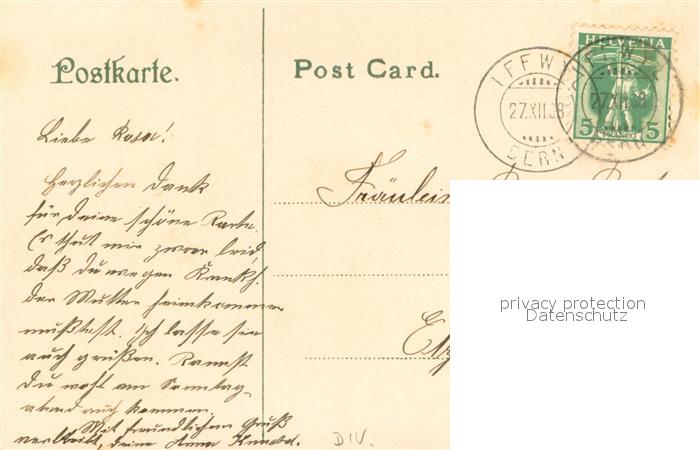 Postkarte.
Post Card.
HELVETIA
5 FRANCO 5
IFFWI
27.XII.08
BERN
Liebe Rosa!
Herzlichen Dank
für deine schöne Karte.
Es thut mir zwar leid,
daß du wegen Krankh.
der Mutter heimkommen
mußtest. Ich lasse sie
auch grüßen. Kannst
du wohl am Sonntag-
abend auch kommen.
Mit freundlichem Gruß
verbleibt, deine Anna
Fräulein
privacy protection
Datenschutz
DIV.